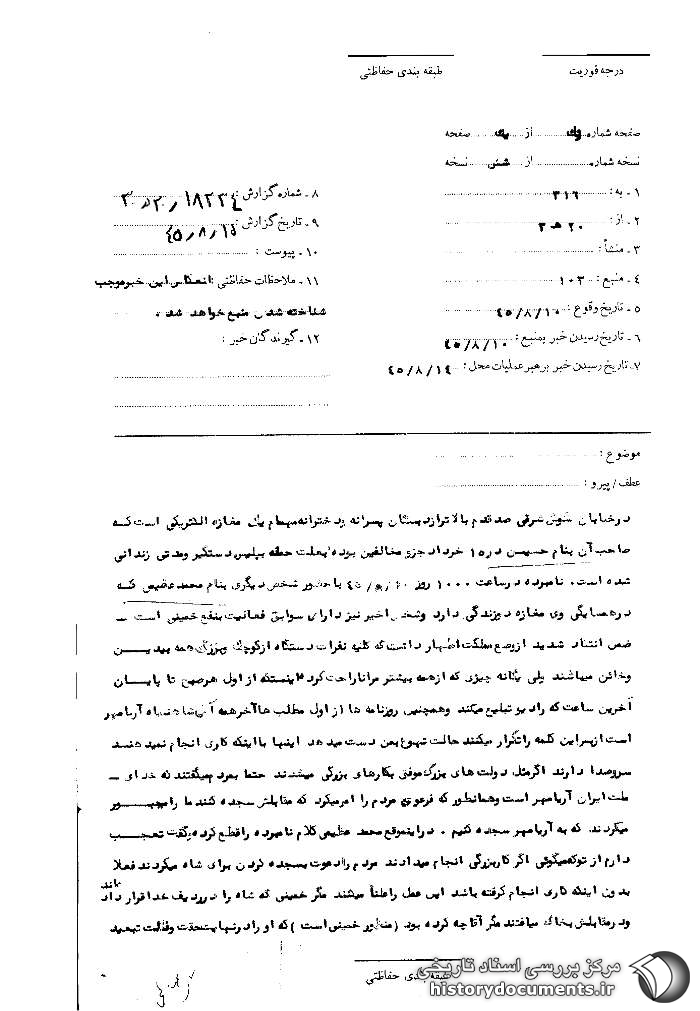 درجه فوریت
طبقه بندی حفاظتی
صفحه شماره از صفحه
نسخه شماره از شش نسخه
۱ - به : ۳۱۶
۲ - از : ۲۰ ه ۳
۳ - منشأ :
۴ - منبع : ۱۰۳
۵ - تاریخ وقوع : ۴۵/۸/۱۰
۶ - تاریخ رسیدن خبر بمنبع : ۴۵/۸/۱۰
۷ - تاریخ رسیدن خبر برهبر عملیات محل : ۴۵/۸/۱۴
۸ - شماره گزارش : ۱۸۲۳۴
۹ - تاریخ گزارش : ۴۵/۸/۱۵
۱۰ - پیوست :
۱۱ - ملاحظات حفاظتی : انعکاس این خبر موجب
شناخته شدن منبع خواهد شد .
۱۲ - گیرندگان خبر :
موضوع :
عطف / پیرو :
در خیابان شوش شرقی صد قدم بالاتر از دبستان پسرانه و دخترانه یک مغازه الکتریکی است که
صاحب آن بنام حسین در ۱۵ خرداد جزو مخالفین بوده بعلت حمله بپلیس دستگیر و مدتی زندانی
شده است . نامبرده در ساعت ۱۰۰۰ روز با حضور شخص دیگری بنام محمد عظیمی که
در همسایگی وی مغازه دوزندگی دارد و شخص اخیر نیز دارای سوابق فعالیت بنفع خمینی است -
ضمن انتقاد شدید از وضع مملکت اظهار داشت که کلیه نفرات دستگاه از کوچک و بزرگ همه بیدین
و خائن میباشند ولی یگانه چیزی که از همه بیشتر مرا ناراحت کرده اینستکه از اول هر صبح تا پایان
آخرین ساعت که رادیو تبلیغ میکند و همچنین روزنامه ها از اول مطلب تا آخر همه آن شاهنشاه آریامهر
است از بس این کلمه را تکرار میکنند حالت تهوع بمن دست میدهد اینها با اینکه کاری انجام نمیدهند
سروصدا دارند اگر مثل دولت های بزرگ موفق بکارهای بزرگی میشدند حتما بمردم میگفتند که خدای -
ملت ایران آریامهر است و همانطور که فرعون مردم را امر میکرد که مقابلش سجده کنند ما را مجبور
میکردند که به آریامهر سجده کنیم . در اینموقع محمد عظیمی کلام نامبرده را قطع کرده و گفت تعجب
دارم از تو که میگوئی اگر کار بزرگی انجام میدادند مردم را دعوت بسجده کردن برای شاه میکردند فعلا
بدون اینکه کاری انجام گرفته باشد این عمل را علناً میکنند مگر خمینی که شاه را در ردیف خدا قرار داده‌اند
و در مقابلش بخاک میافتند مگر آقا چه کرده بود ( منظور خمینی است ) که او را در نهایت حقت و فلاکت تبعید
طبقه بندی حفاظتی
مرکز بررسی اسناد تاریخی
historydocuments.ir